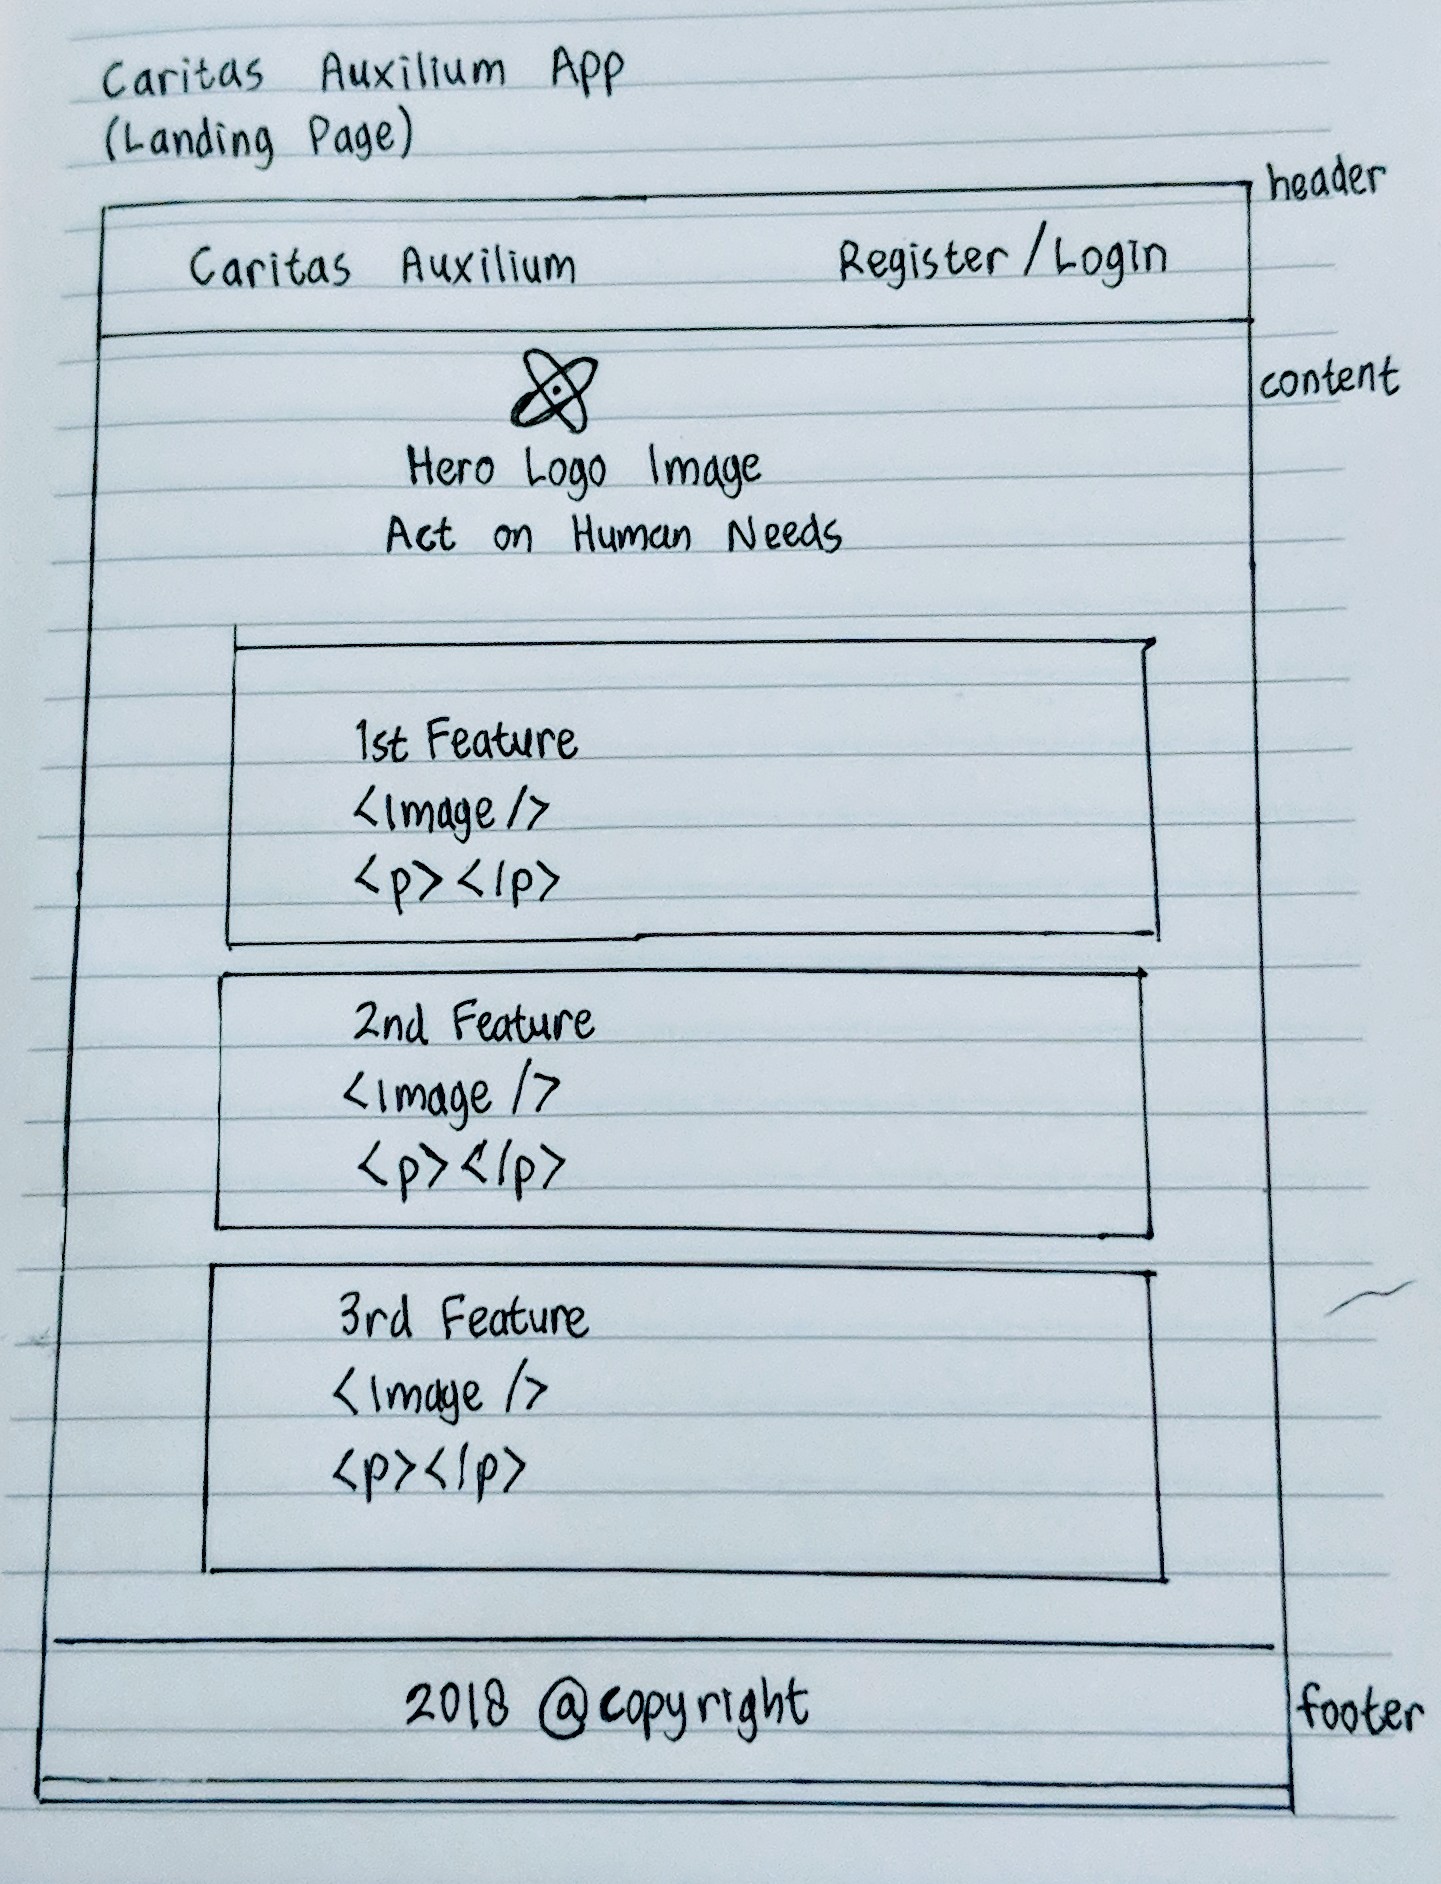 Caritas Auxilium App
(Landing Page)
header
Caritas Auxilium Register/Login
content
Hero Logo Image
Act on Human Needs
1st Feature
<Image />
<p></p>
2nd Feature
<Image />
<p></p>
3rd Feature
<Image />
<p></p>
2018 @copyright
footer